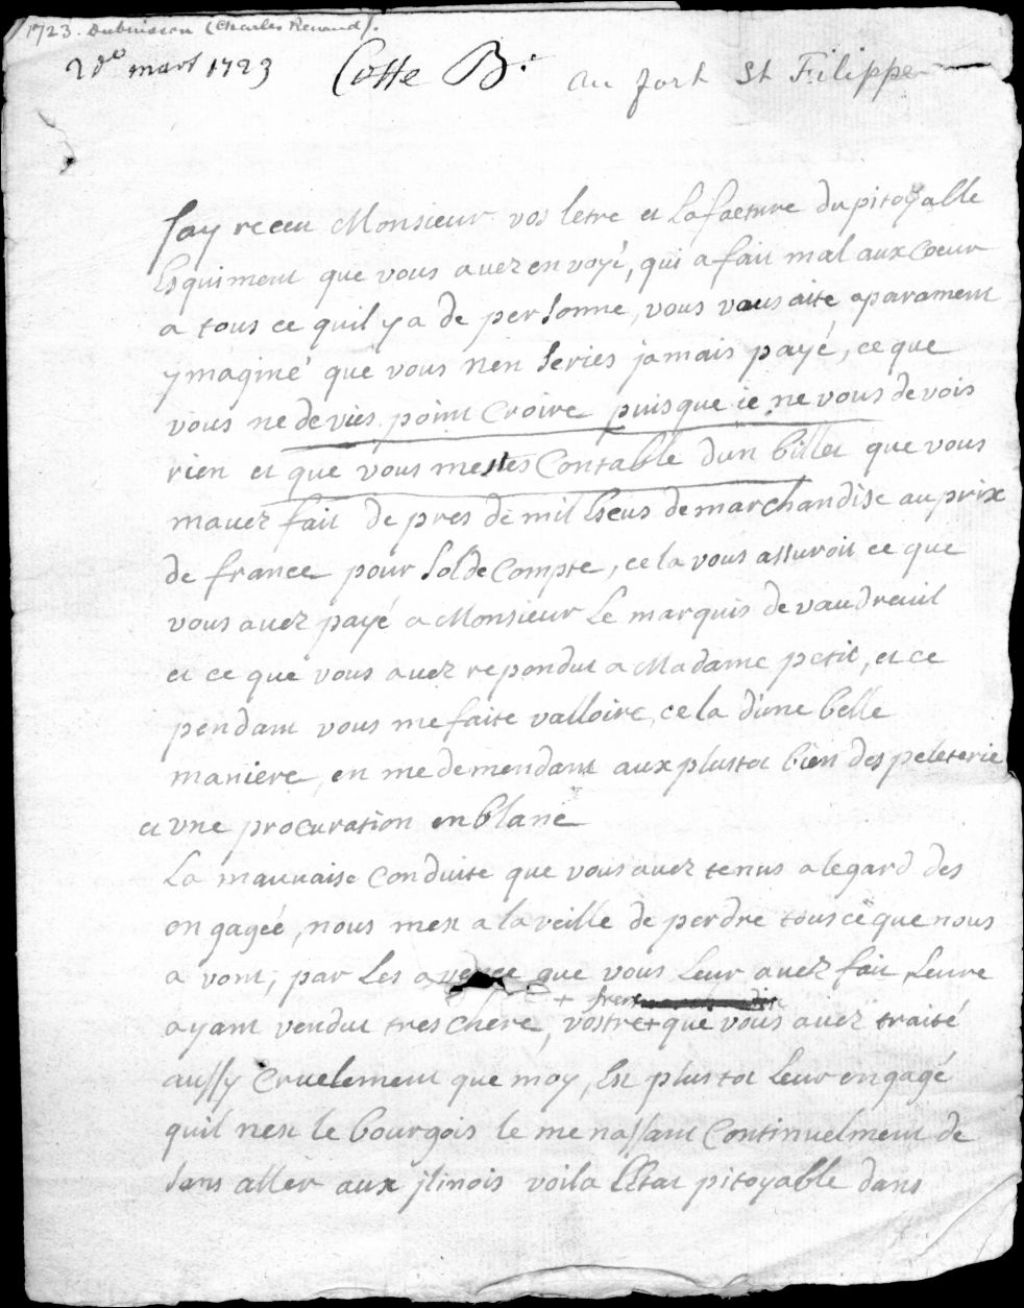 1723. Dubuisson (Charles Renaud).
2 de mars 1723 Cotte B. au fort St Filippe
Jay receu Monsieur vos letre et la facture du pitoyable
Esquiment que vous avez envoyé, qui a fait mal aux coeur
a tous ce quil y a de personne, vous vous aite aparament
ymaginé que vous nen series jamais payé, ce que
vous ne devies point Croire puisque ie ne vous devois
rien et que vous mestes Contable dun billet que vous
mavez fait de pres de mil Escus de marchandise au prix
de france pour Solde Compte, cela vous assuroit ce que
vous avez payé a Monsieur Le marquis de vaudreuil
et ce que vous avez repondut a Madame petit, et ce
pendant vous me faite valloire, cela dune belle
maniere, en me demendant aux plustot bien des peleterie
et vne procuration en blanc
La mauvaise Conduite que vous avez tenus a legard des
engagée, nous met a la veille de perdre tous ce que nous
avont, par Les que vous Leur avez fait Leure
+ frere
ayant vendut tres chere, vostre + que vous avez traité
aussy Cruelement que moy, Est plustot Leur engagé
quil nest le bourgois le menassant Continuelment de
sans aller aux jlinois voila LEtat pitoyable dans